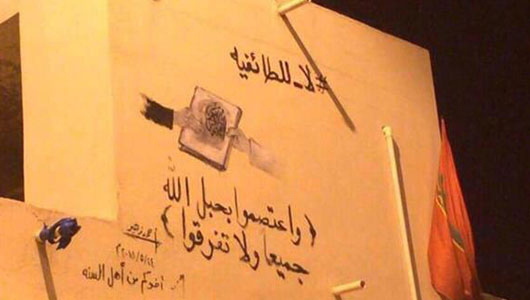 #لا_للطائفيه
﴿واعتصموا بحبل الله
جميعا ولا تفرقوا﴾
أخوكم من أهل السنه